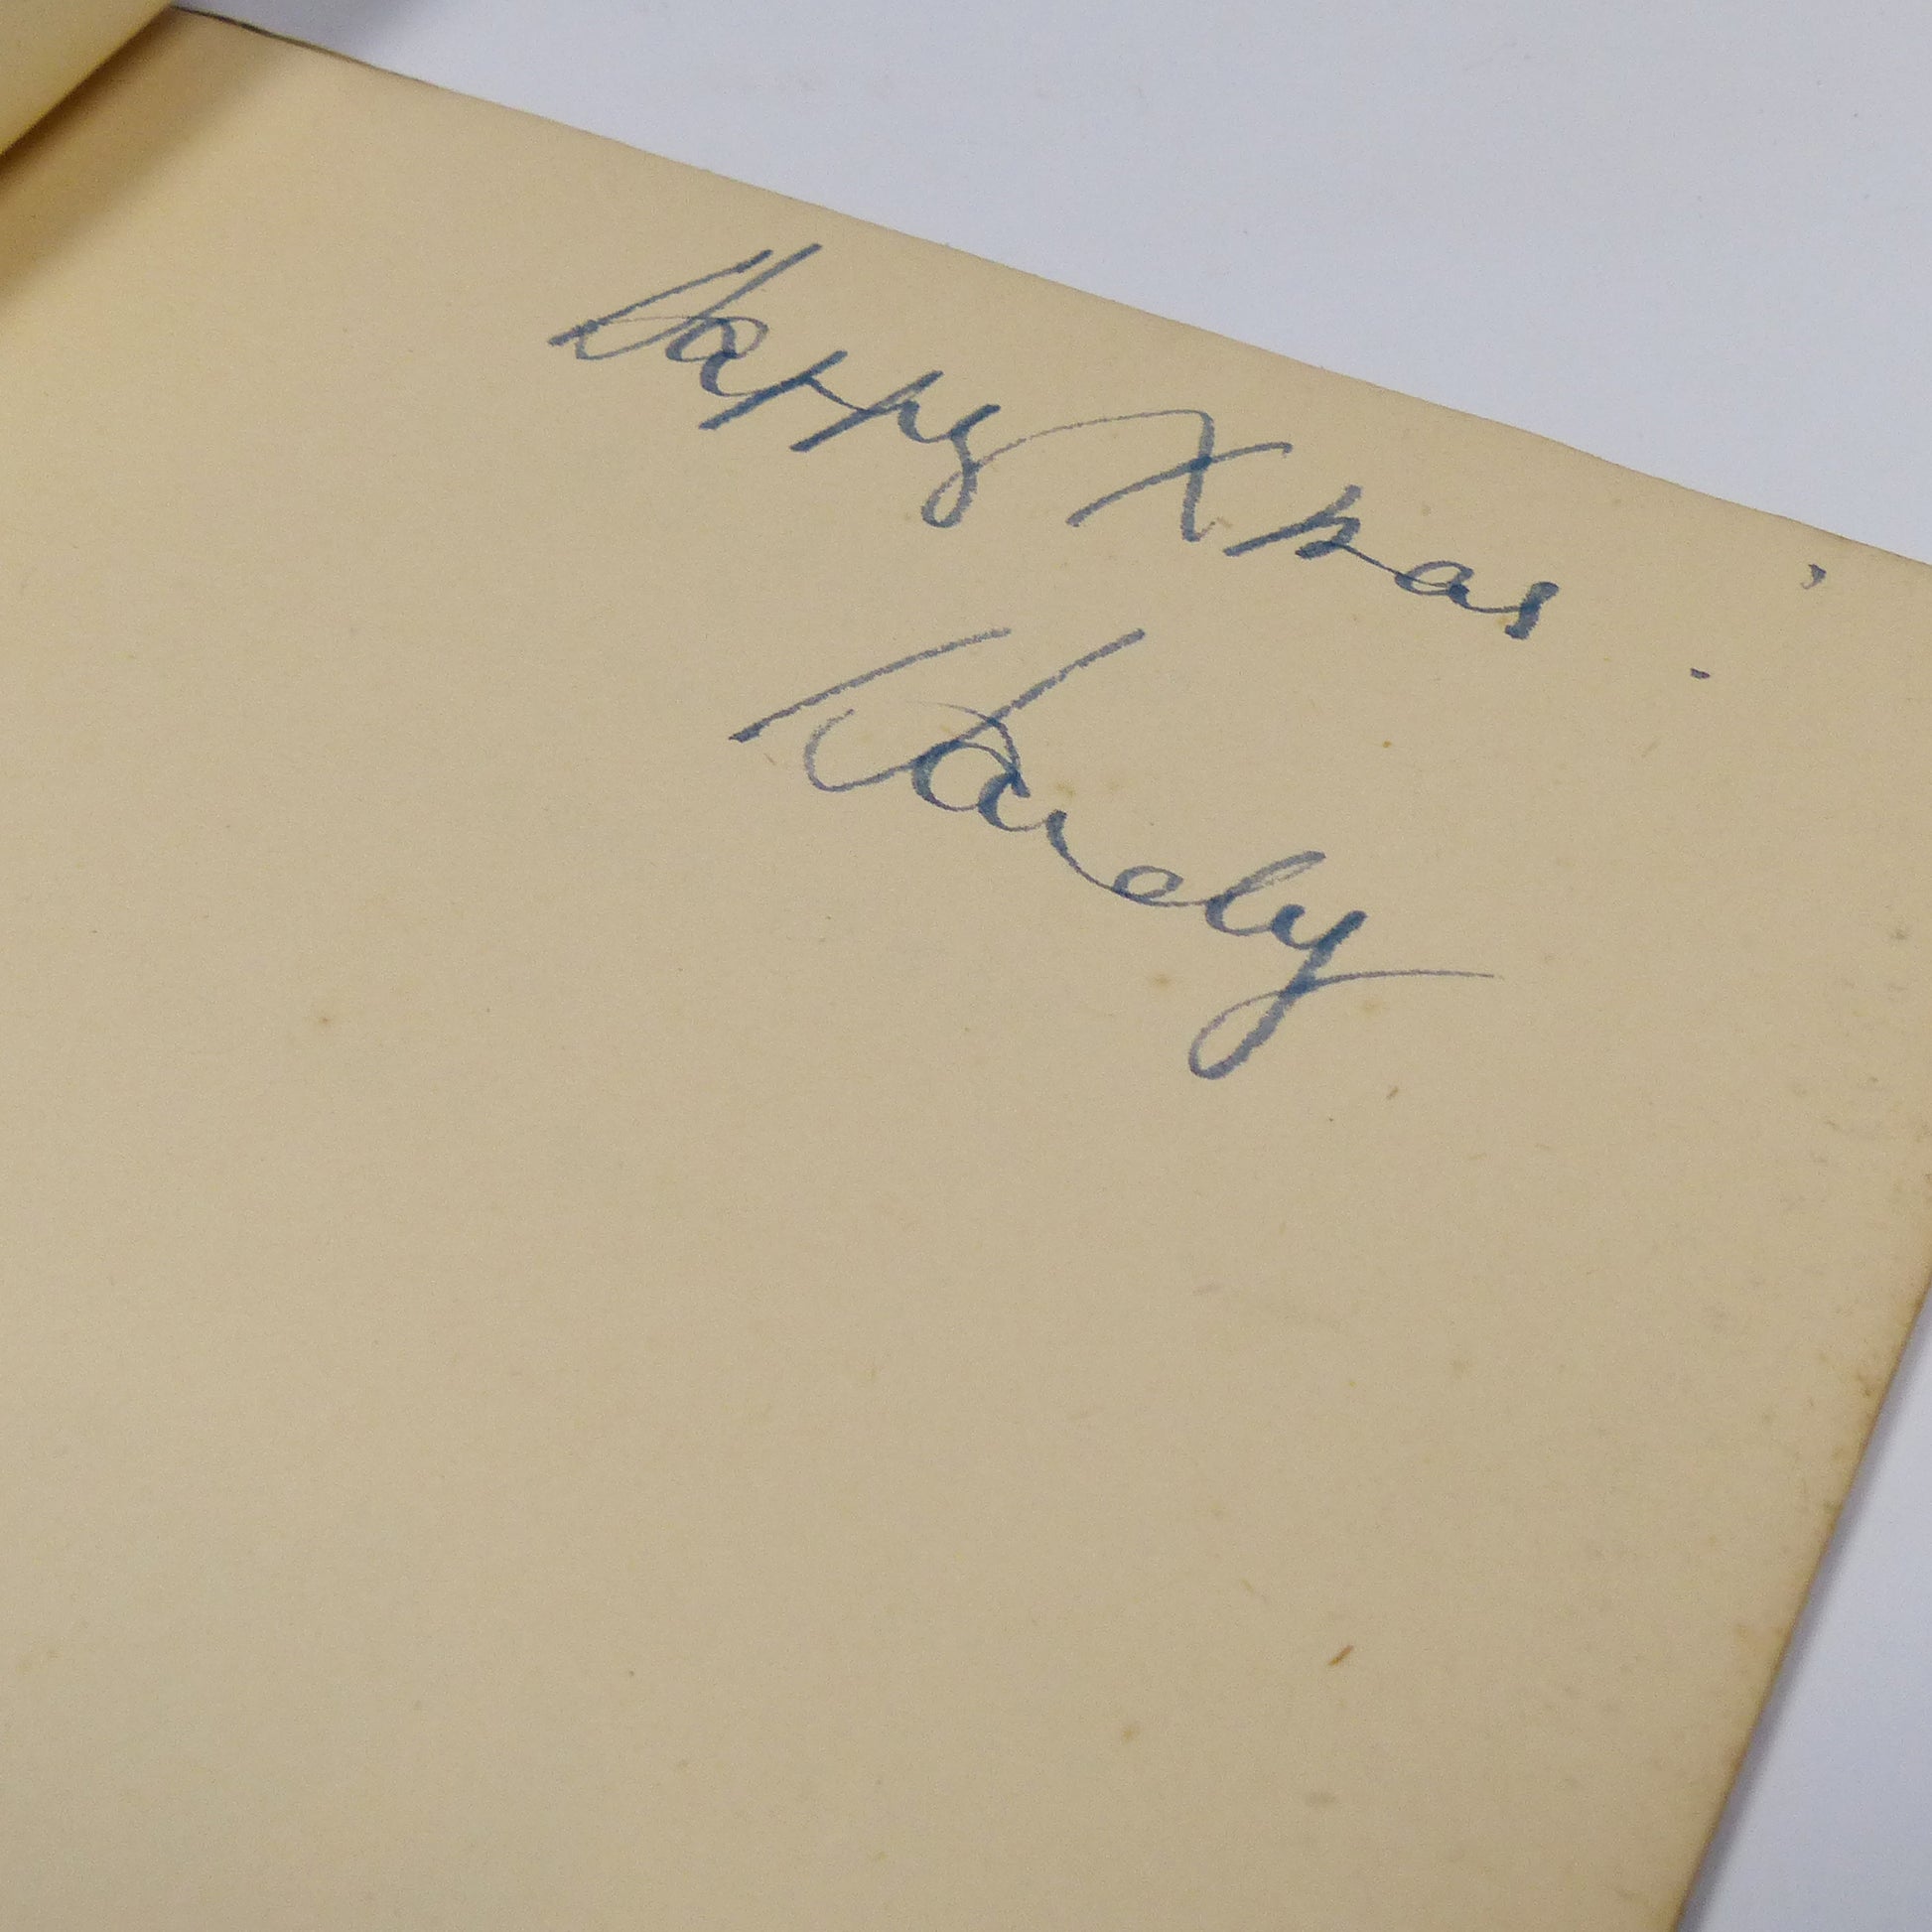 Happy Xmas
Hardy